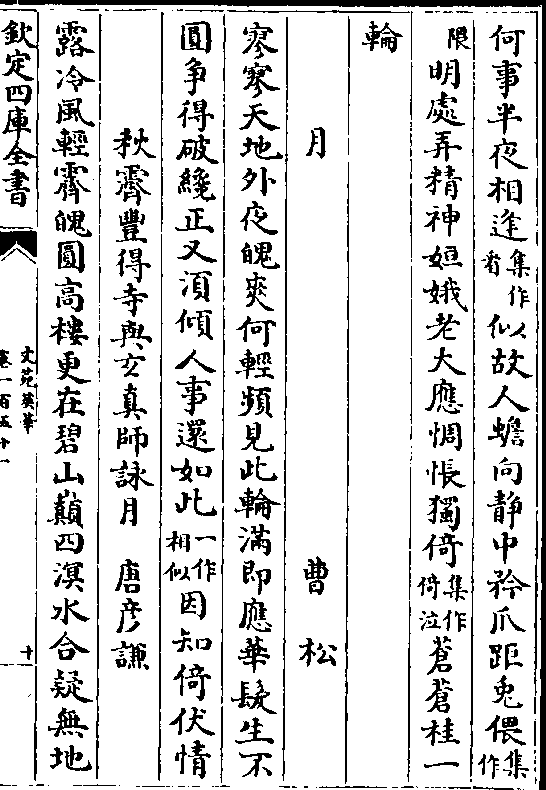 何事半夜相逢集作看似故人蟾向静中矜爪距兎偎集作
隈明處弄精神姮娥老大應惆悵獨倚集作倚泣蒼蒼桂一
輪
月　曹松
寥寥天地外夜魄爽何輕頻見此輪滿即應華髮生不
圓争得破纔正又湏傾人事還如此一作相似因知倚伏情
秋霽豐得寺與玄真師詠月　唐彦謙
露冷風輕霽魄圓高樓更在碧山巔四溟水合疑無地
欽定四庫全書
文苑英華
卷一百五十一
十